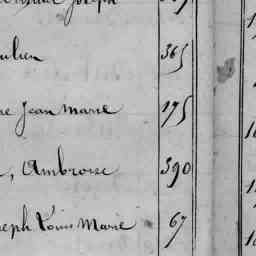 Joseph
ulien 365
ne Jean Marie 175
, Ambroise 390
seph Louis Marie 67